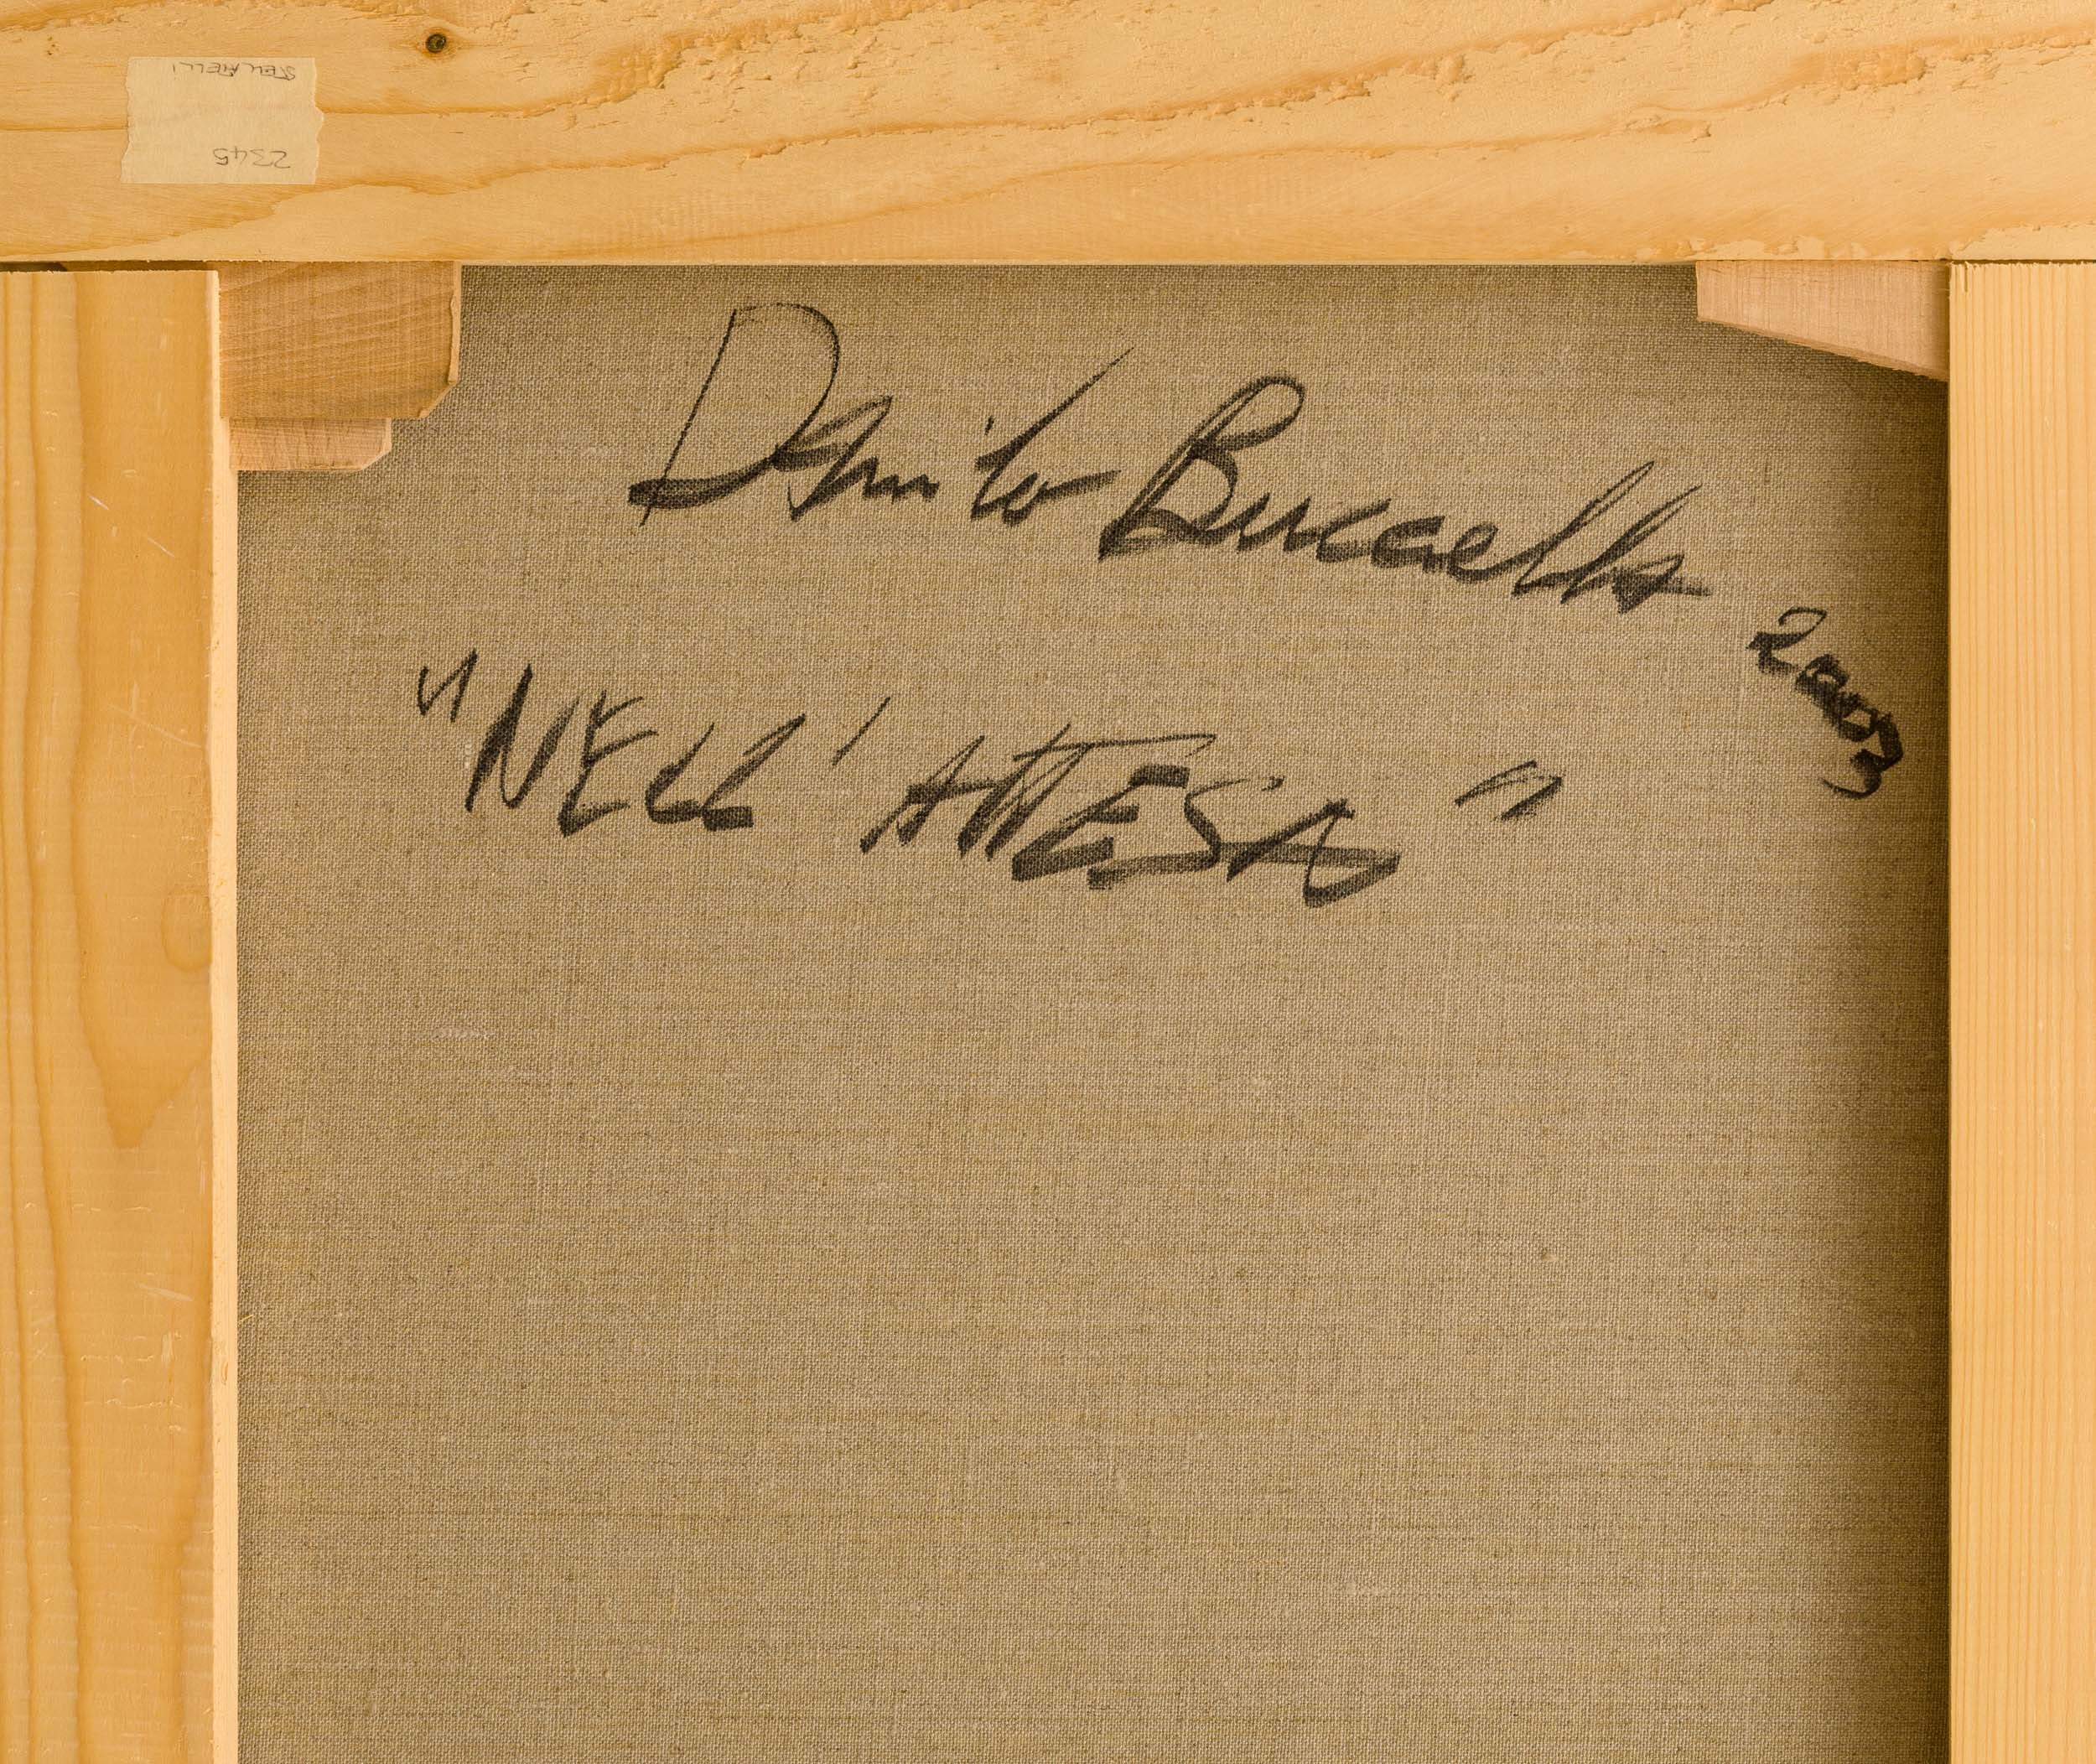 Danilo Buccella 2003
"NELL' ATTESA"
2345